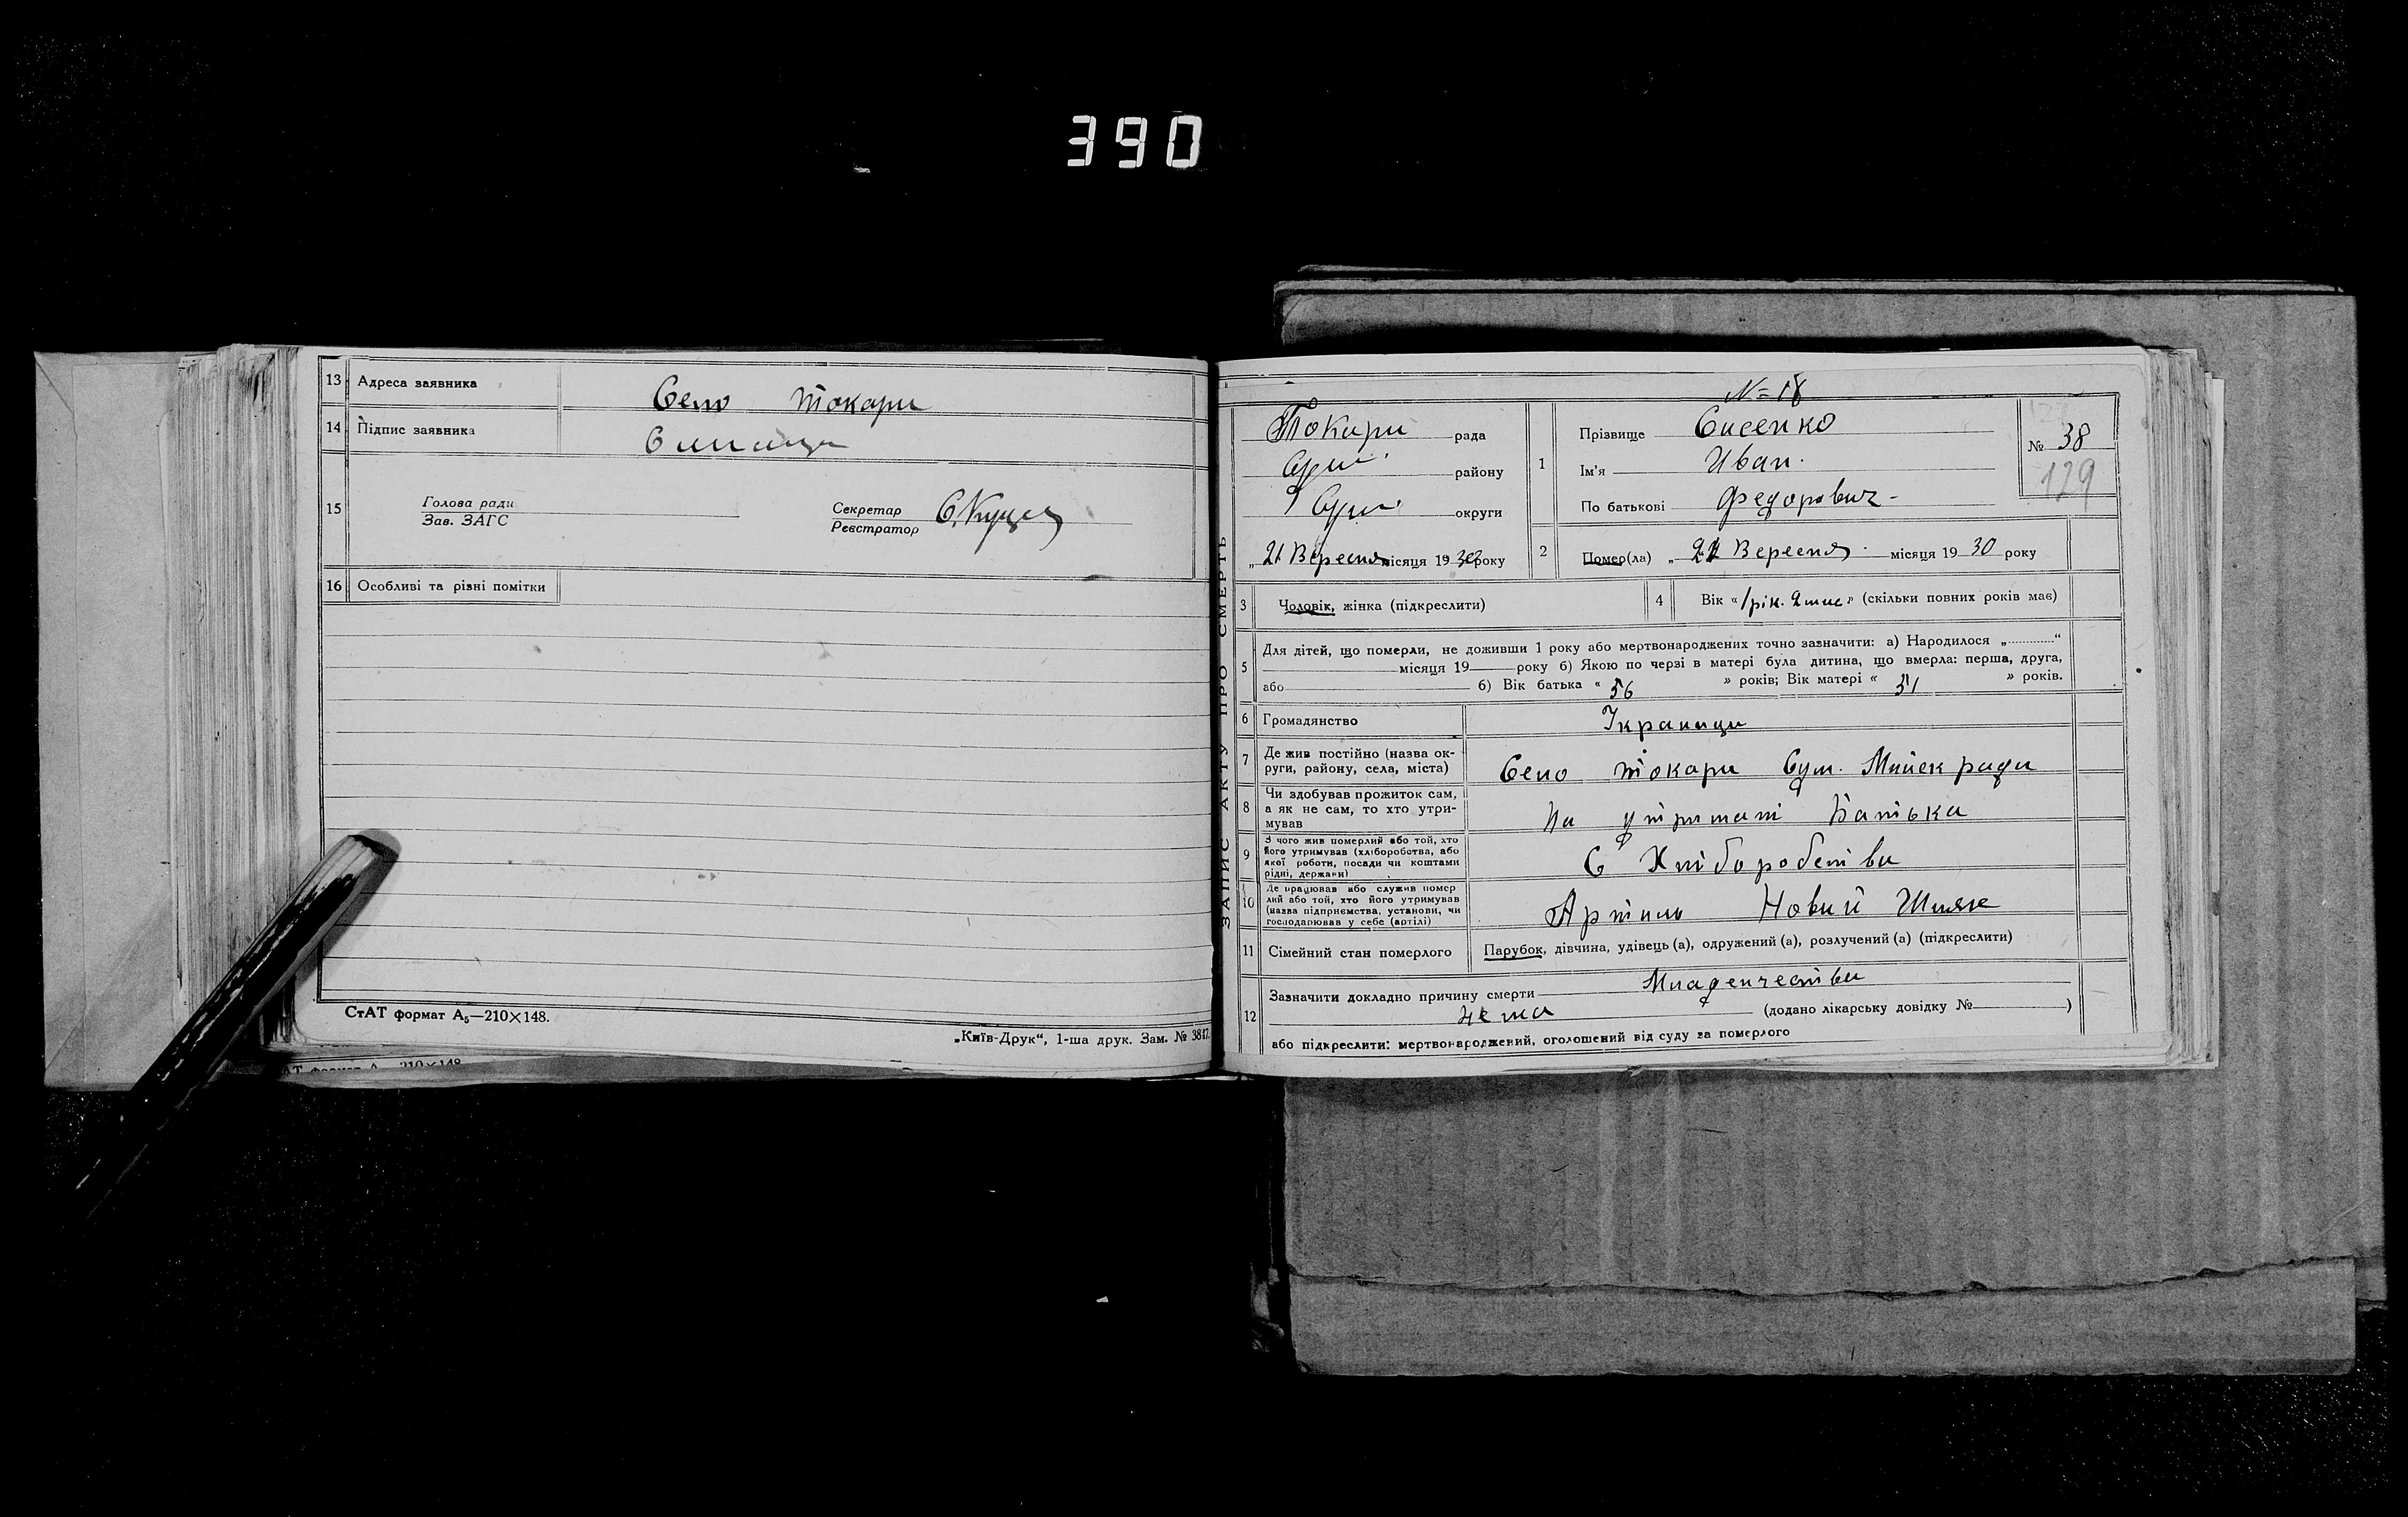 390
13 Адреса заявника Село Токари
14 Підпис заявника
15 Голова ради
Зав. ЗАГС
Секретар
Реєстратор
16 Особливі та різні помітки
СтАТ формат А5—210×148.
„Київ-Друк“, 1-ша друк. Зам. № 3817.
ЗАПИС АКТУ ПРО СМЕРТЬ
N=18
Токари рада
Сум. району
Сум. округи
„21 Вересня місяця 1930 року
1 Прізвище Сисенко
Ім'я Иван.
По батькові Федорович -
№ 38
129
2 Помер(ла) „ 21 Вересня місяця 1930 року
3 Чоловік, жінка (підкреслити)
4 Вік «1 рік. 2 міс» (скільки повних років має)
5 Для дітей, що померли, не доживши 1 року або мертвонароджених точно зазначити: а) Народилося „............“
місяця 19 року б) Якою по черзі в матері була дитина, що вмерла: перша, друга,
або б) Вік батька « 56 » років; Вік матері « 51 » років.
6 Громадянство Украинци
7 Де жив постійно (назва округи, району, села, міста) Село Токари Сум. Мійск ради
8 Чи здобував прожиток сам, а як не сам, то хто утримував На утримані Батька
9 З чого жив померлий або той, хто його утримував (хліборобства, або якої роботи, посади чи коштами рідні, держави) С Хліборобства
10 Де працював або служив померлий або той, хто його утримував (назва підприємства, установи, чи господарював у себе (артілі) Артиль Новий Шлях
11 Сімейний стан померлого Парубок, дівчина, удівець (а), одружений (а), розлучений (а) (підкреслити)
12 Зазначити докладно причину смерти Младенчества
нема (додано лікарську довідку № )
або підкреслити: мертвонароджений, оголошений від суду за померлого